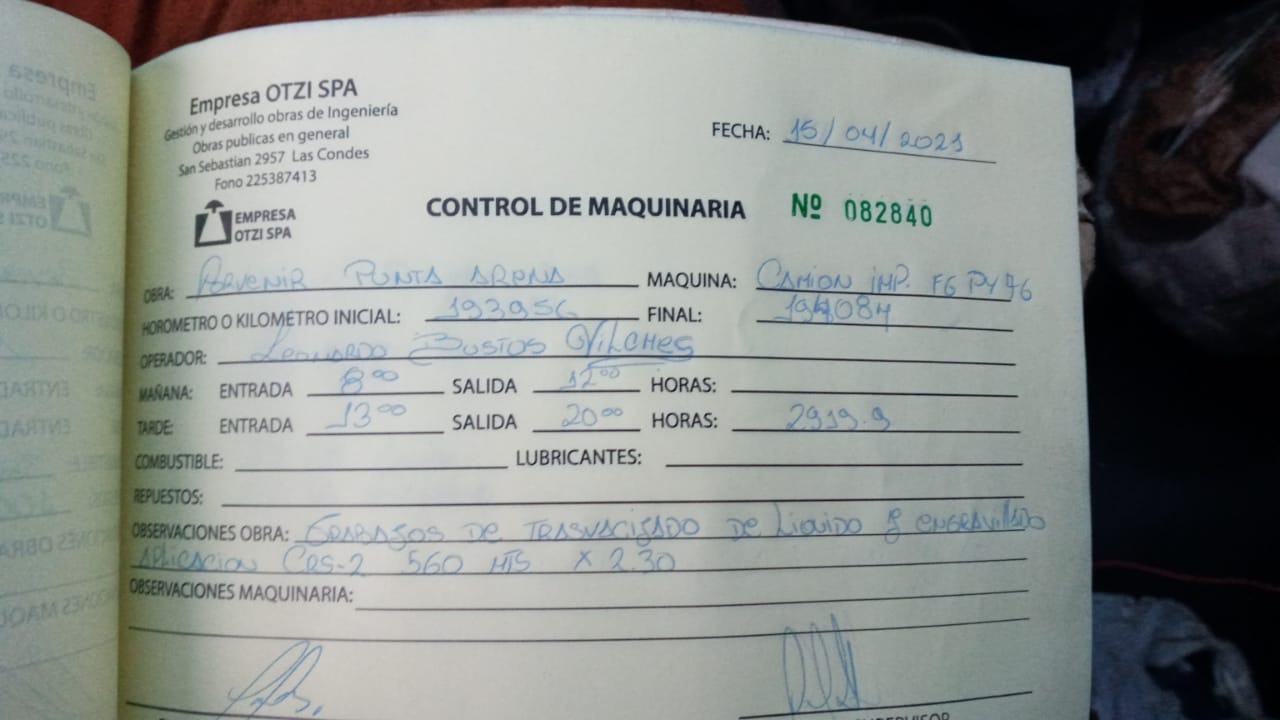 Empresa OTZI SPA
Gestión y desarrollo obras de Ingeniería
Obras publicas en general
San Sebastian 2957 Las Condes
Fono 225387413
FECHA: 15/04/2021
EMPRESA
OTZI SPA
CONTROL DE MAQUINARIA Nº 082840
OBRA: Porvenir Punta Arena MAQUINA: Camion imp. FGPY76
HOROMETRO O KILOMETRO INICIAL: 193956 FINAL: 194084
OPERADOR: Leonardo Bustos Vilches
MAÑANA: ENTRADA 8:00 SALIDA 12:00 HORAS:
TARDE: ENTRADA 13:00 SALIDA 20:00 HORAS: 2919.9
COMBUSTIBLE: LUBRICANTES:
REPUESTOS:
OBSERVACIONES OBRA: Trabajos de Trasvacijado de Liquido y engravillado
Aplicacion CRS-2 560 Mts x 2.30
OBSERVACIONES MAQUINARIA:
SUPERVISOR